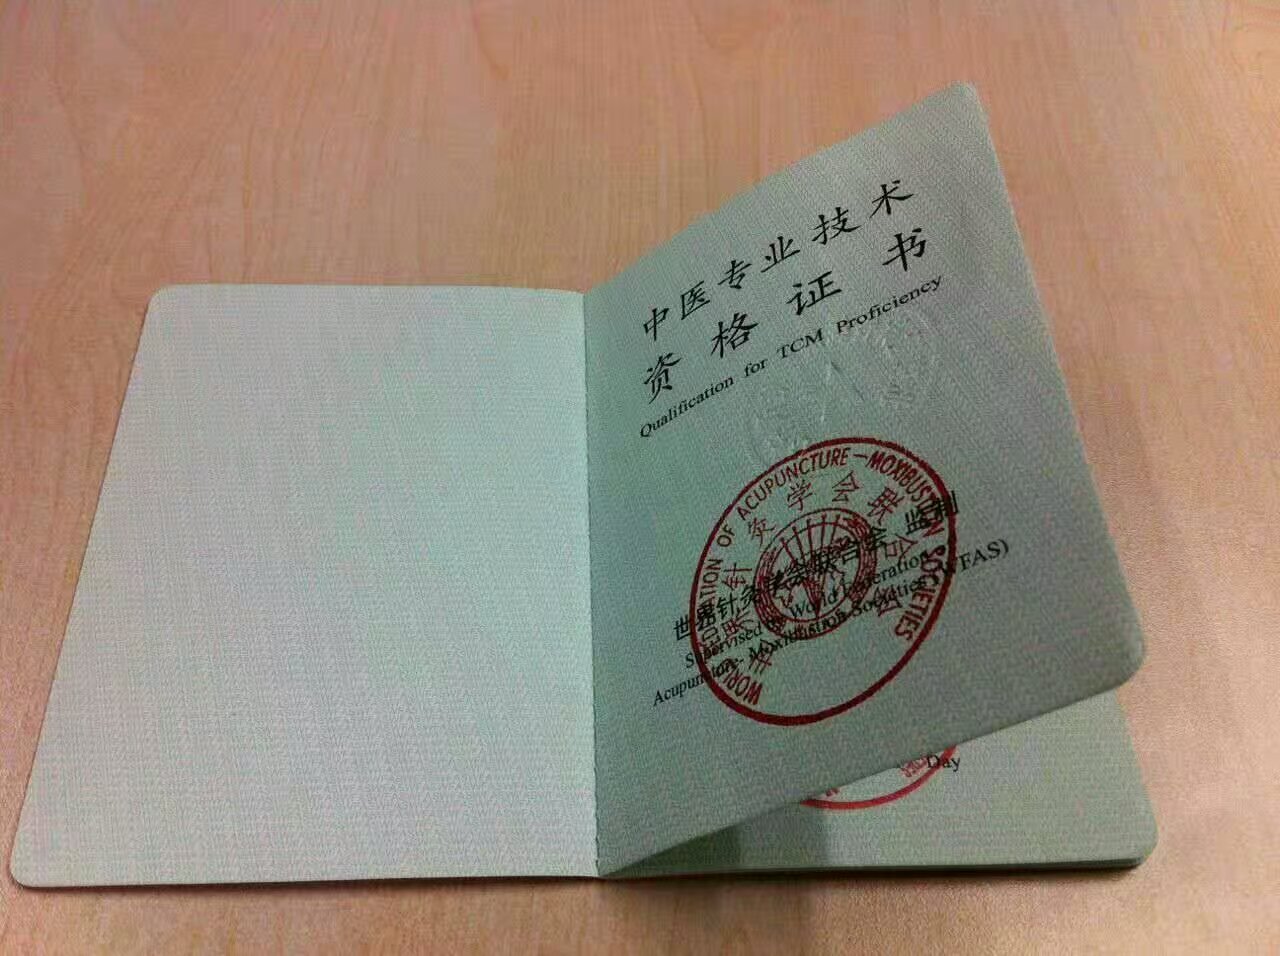 中医专业技术
资格证书
Qualification for TCM Proficiency
世界针灸学会联合会 监制
Supervised by World Federation
Acupuncture-Moxibustion Societies (WFAS)
WORLD FEDERATION OF ACUPUNCTURE—MOXIBUSTION SOCIETIES
世界针灸学会联合会
Day